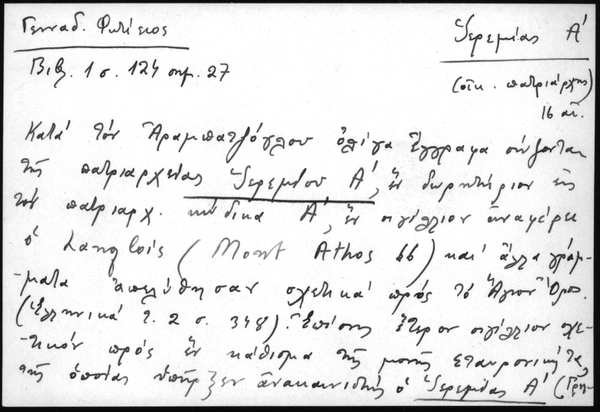 Γενναδ. Φωτίειος
Ἱερεμίας Α΄
Βιβλ. 1 σ. 124 σημ. 27
(οἰκ. πατριάρχης)
16 αἰ.
Κατά τόν Ἀραμπατζόγλου ὀλίγα ἔγγραφα σώζονται
τῆς πατριαρχείας Ἱερεμίου Α΄, ἕν δωρητήριον εἰς
τόν πατριαρχ. κώδικα Α΄, ἕν σιγίλλιον ἀναφέρει
ὁ Langlois (Mont Athos 66) καί ἄλλα γράμ-
-ματα ἀπελύθησαν σχετικά πρός τό Ἅγιον Ὄρος.
(Ἑλληνικά τ. 2 σ. 348). Ἐπίσης ἕτερον σιγίλλιον σχε-
-τικόν πρός ἕν κάθισμα τῆς μονῆς Σταυρονικήτα,
τῆς ὁποίας ὑπῆρξεν ἀνακαινιστής ὁ Ἱερεμίας Α΄ (Γρη-